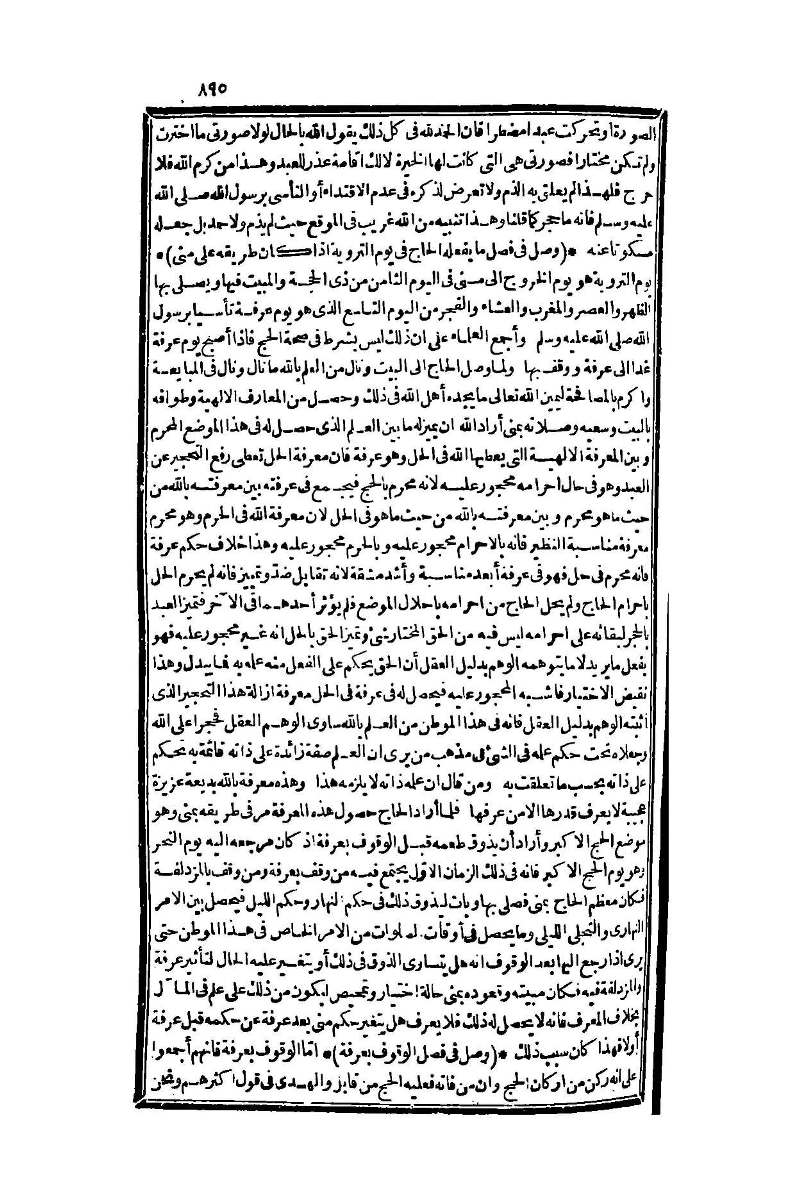 ٨٩٥
الصورة أو تحركت عبدا مضطرا فان الحمد لله فى كل ذلك يقول الله بالحال لولا صورتى ما اخترت
ولم تكن مختارا فصورتى هى التى كانت لها الخيرة لا لك اقامة عذر للعبد وهذا من كرم الله فلا
حرج فلهذا لم يعلق به الذم ولا تعرض لذكره فى عدم الاقتداء أو التأسى برسول الله صلى الله
عليه وسلم فانه ما حجر كما قلنا وهذا تنبيه من الله غريب فى الموقع حيث لم يذم ولا حمد بل جعله
مسكوتا عنه * (وصل فى فصل ما يفعله الحاج فى يوم التروية اذا كان طريقه على منى) *
يوم التروية هو يوم الخروج الى منى فى اليوم الثامن من ذى الحجة والمبيت فيها ويصلى بها
الظهر والعصر والمغرب والعشاء والفجر من اليوم التاسع الذى هو يوم عرفة تأسيا برسول
الله صلى الله عليه وسلم وأجمع العلماء على ان ذلك ليس بشرط فى صحة الحج فاذا أصبح يوم عرفة
غدا الى عرفة ووقف بها ولما وصل الحاج الى البيت ونال من العلم بالله ما نال ونال فى المبايعة
واكرم بالمصافحة ليمين الله تعالى ما يجده أهل الله فى ذلك وحصل من المعارف الالهية وطوافه
بالبيت وسعيه وصلاته بمنى أراد الله ان يميز له ما بين العلم الذى حصل له فى هذا الموضع المحرم
وبين المعرفة الالهية التى يعطيها الله فى الحل وهو عرفة فان معرفة الحل تعطى رفع التحجير عن
العبد وهو فى حال احرامه محجور عليه لانه محرم بالحج فيجمع فى عرفته بين معرفته بالله من
حيث ما هو محرم وبين معرفته بالله من حيث ما هو فى الحل لان معرفة الله فى الحرم وهو محرم
معرفة مناسبة النظير فانه بالاحرام محجور عليه وبالحرم محجور عليه وهذا خلاف حكم عرفة
فانه محرم فى حل فهو فى عرفة أبعد مناسبة وأشد مشقة لانه تقابل ضد وتمييز فانه لم يحرم الحل
باحرام الحاج ولم يحل الحاج من احرامه باحلال الموضع فلم يؤثر أحدهما فى الآخر فتميز العبد
بالحجر لبقائه على احرامه ليس فيه من الحق المختار شئ وتميز الحق بالحل انه غير محجور عليه فهو
يفعل ما يريد لا ما يتوهمه الوهم بدليل العقل أن الحق يحكم على الفعل منه علمه به فما يبدل وهذا
نقيض الاختيار فأشبه المحجور عليه فيحصل له فى عرفة فى الحل معرفة ازالة هذا التحجير الذى
اثبته الوهم بدليل العقل فانه فى هذا الموطن من العلم بالله ساوى الوهم العقل فحجرا على الله
وجعلاه تحت حكم علمه فى الشئ فى مذهب من يرى ان العلم صفة زائدة على ذاته قائمة به تحكم
على ذاته بحسب ما تعلقت به ومن قال ان علمه ذاته لا يلزمه هذا وهذه معرفة بالله بديعة عزيزة
عجيبة لا يعرف قدرها الا من عرفها فلما أراد الحاج حصول هذه المعرفة مر فى طريقه بمنى وهو
موضع الحج الاكبر وأراد أن يذوق طعمه قبل الوقوف بعرفة اذ كان مرجعه اليه يوم النحر
وهو يوم الحج الاكبر فانه فى ذلك الزمان الاول يجتمع فيه من وقف بعرفة ومن وقف بالمزدلفة
فكان معظم الحاج بمنى فصلى بها وبات ليذوق ذلك فى حكم النهار وحكم الليل فيحصل بين الامر
النهارى والتجلى الليلى وما يحصل فى أوقات الصلوات من الامر الخاص فى هذا الموطن حتى
يرى اذا رجع اليها بعد الوقوف انه هل يتساوى الذوق فى ذلك أو يتغير عليه الحال لتأثير عرفة
والمزدلفة فيه فكان مبيته وتعوده بمنى حالة اختبار وتمحيص ليكون من ذلك على علم فى المآل
بخلاف المعرف فانه لا يحصل له ذلك فلا يعرف هل يتغير حكم منى بعد عرفة عن حكمه قبل عرفة
أولا فهذا كان سبب ذلك * (وصل فى فصل الوقوف بعرفة) * اما الوقوف بعرفة فانهم أجمعوا
على انه ركن من اركان الحج وان من فاته فعليه الحج من قابل والهدى فى قول اكثرهم ونحن